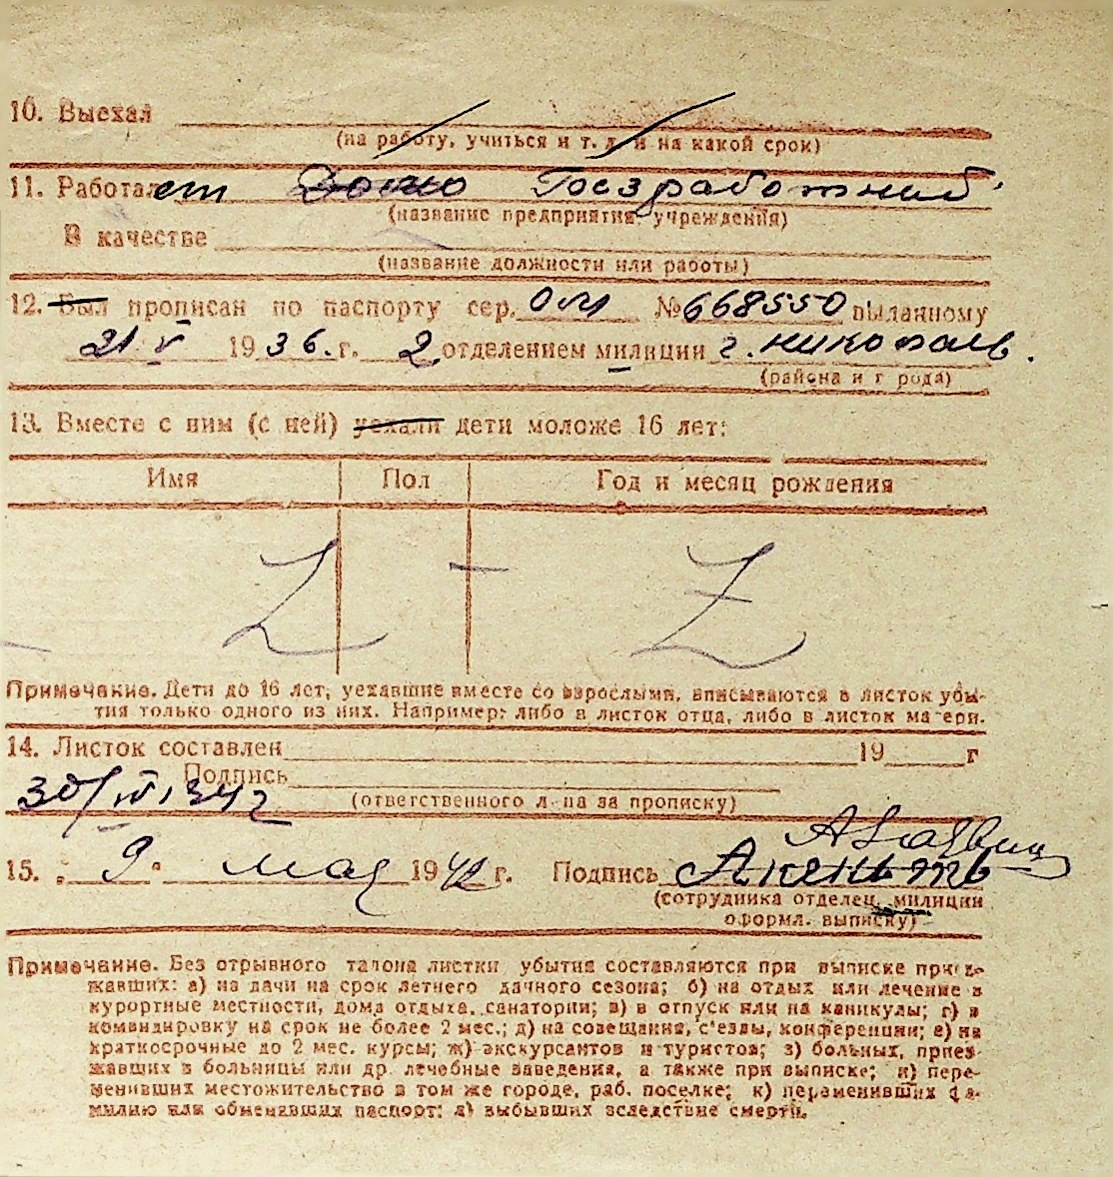 10. Выехал
(на работу, учиться и т. д. и на какой срок)
11. Работает Безработный
(название предприятия, учреждения)
В качестве
(название должности или работы)
12. Был прописан по паспорту сер. ОМ № 668550 выданному
21 V 1936. г. 2 отделением милиции г. Николаев.
(района и города)
13. Вместе с ним (с ней) уехали дети моложе 16 лет:
Имя Пол Год и месяц рождения
Z – Z
Примечание. Дети до 16 лет, уехавшие вместе со взрослыми, вписываются в листок убы-
тия только одного из них. Например: либо в листок отца, либо в листок матери.
14. Листок составлен 19 г
Подпись
30/IV 1942
(ответственного л-ца за прописку)
15. „ 9 " мая 1942 г. Подпись
(сотрудника отделен. милиции
оформл. выписку)
Примечание. Без отрывного талона листки убытия составляются при выписке приез-
жавших: а) на дачи на срок летнего дачного сезона; б) на отдых или лечение в
курортные местности, дома отдыха, санатории; в) в отпуск или на каникулы; г) в
командировку на срок не более 2 мес.; д) на совещания, с'езды, конференции; е) на
краткосрочные до 2 мес. курсы; ж) экскурсантов и туристов; з) больных, приез-
жавших в больницы или др. лечебные заведения, а также при выписке; и) пере-
менивших местожительство в том же городе, раб. поселке; к) переменивших фа-
милию или обменявших паспорт; л) выбывших вследствие смерти.